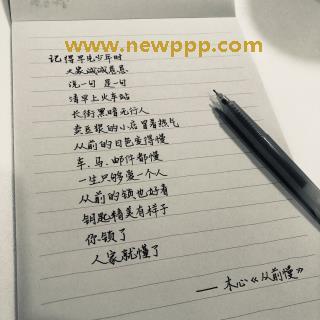 www.newppp.com
记得早先少年时
大家诚诚恳恳
说一句 是一句
清早上火车站
长街黑暗无行人
卖豆浆的小店冒着热气
从前的日色变得慢
车、马、邮件都慢
一生只够爱一个人
从前的锁也好看
钥匙精美有样子
你锁了
人家就懂了
——木心《从前慢》